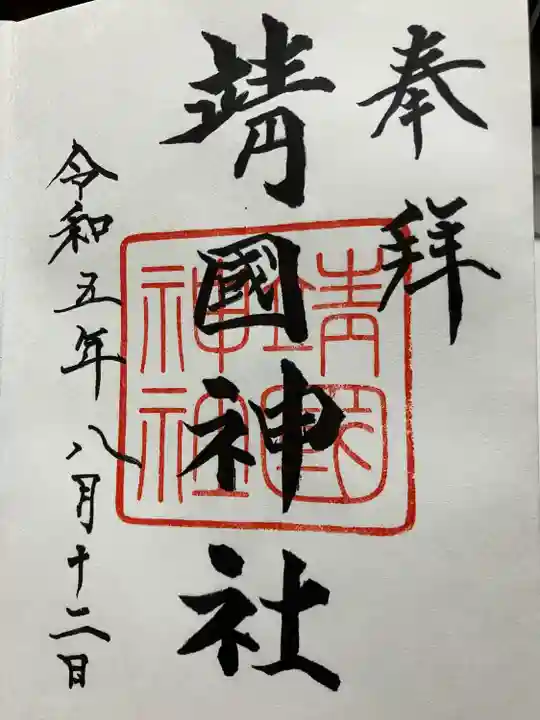 奉拝
靖國神社
靖國
神社
令和五年八月十二日